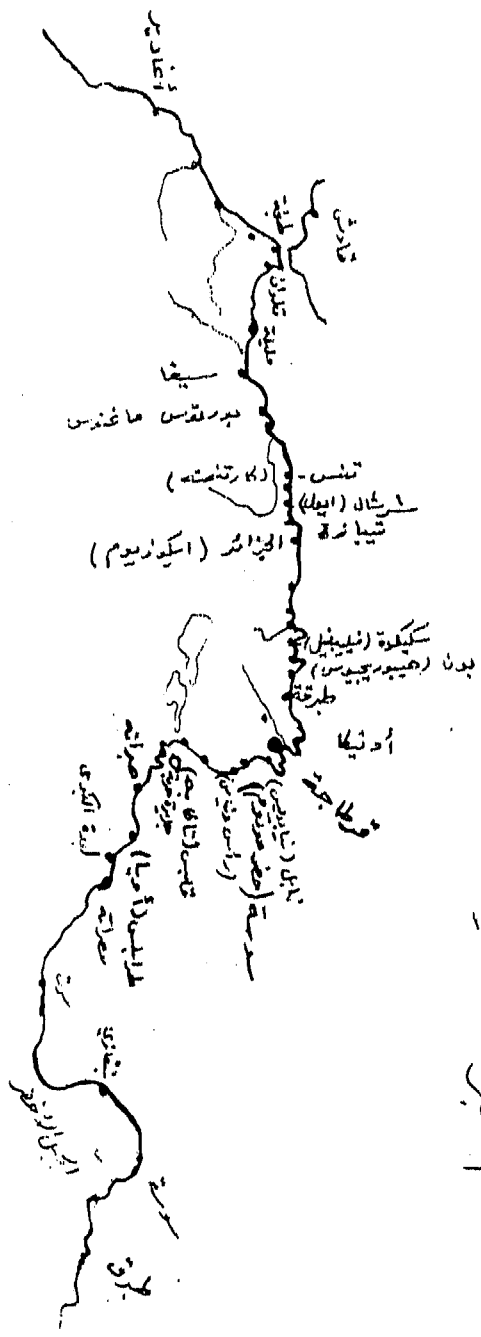 أغادير
قادش
طنجة
تطوان
مليلة
سيغا
بورتوس ماغنوس
تنس - (كارتنسه)
شرشال (ايول)
تيبازة
الجزائر (اسكوزيوم)
سكيكدة (فيليبفيل)
بون (هيبوريجيوس)
طبرقة
أوتيكا
قرطاجة
نابل (نيابوليس)
سوسة (حضرموتوم)
(رأس ديماس)
قابس (تاكابه)
جزيرة جربة
صبراته
طرابلس (أويا)
لبدة الكبرى
مصراته
سرت
بنغازي
الجبل الاخضر
سوسة
طبرق